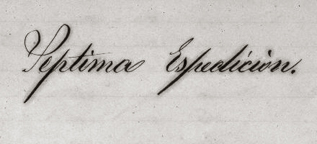 Septima Espedición.